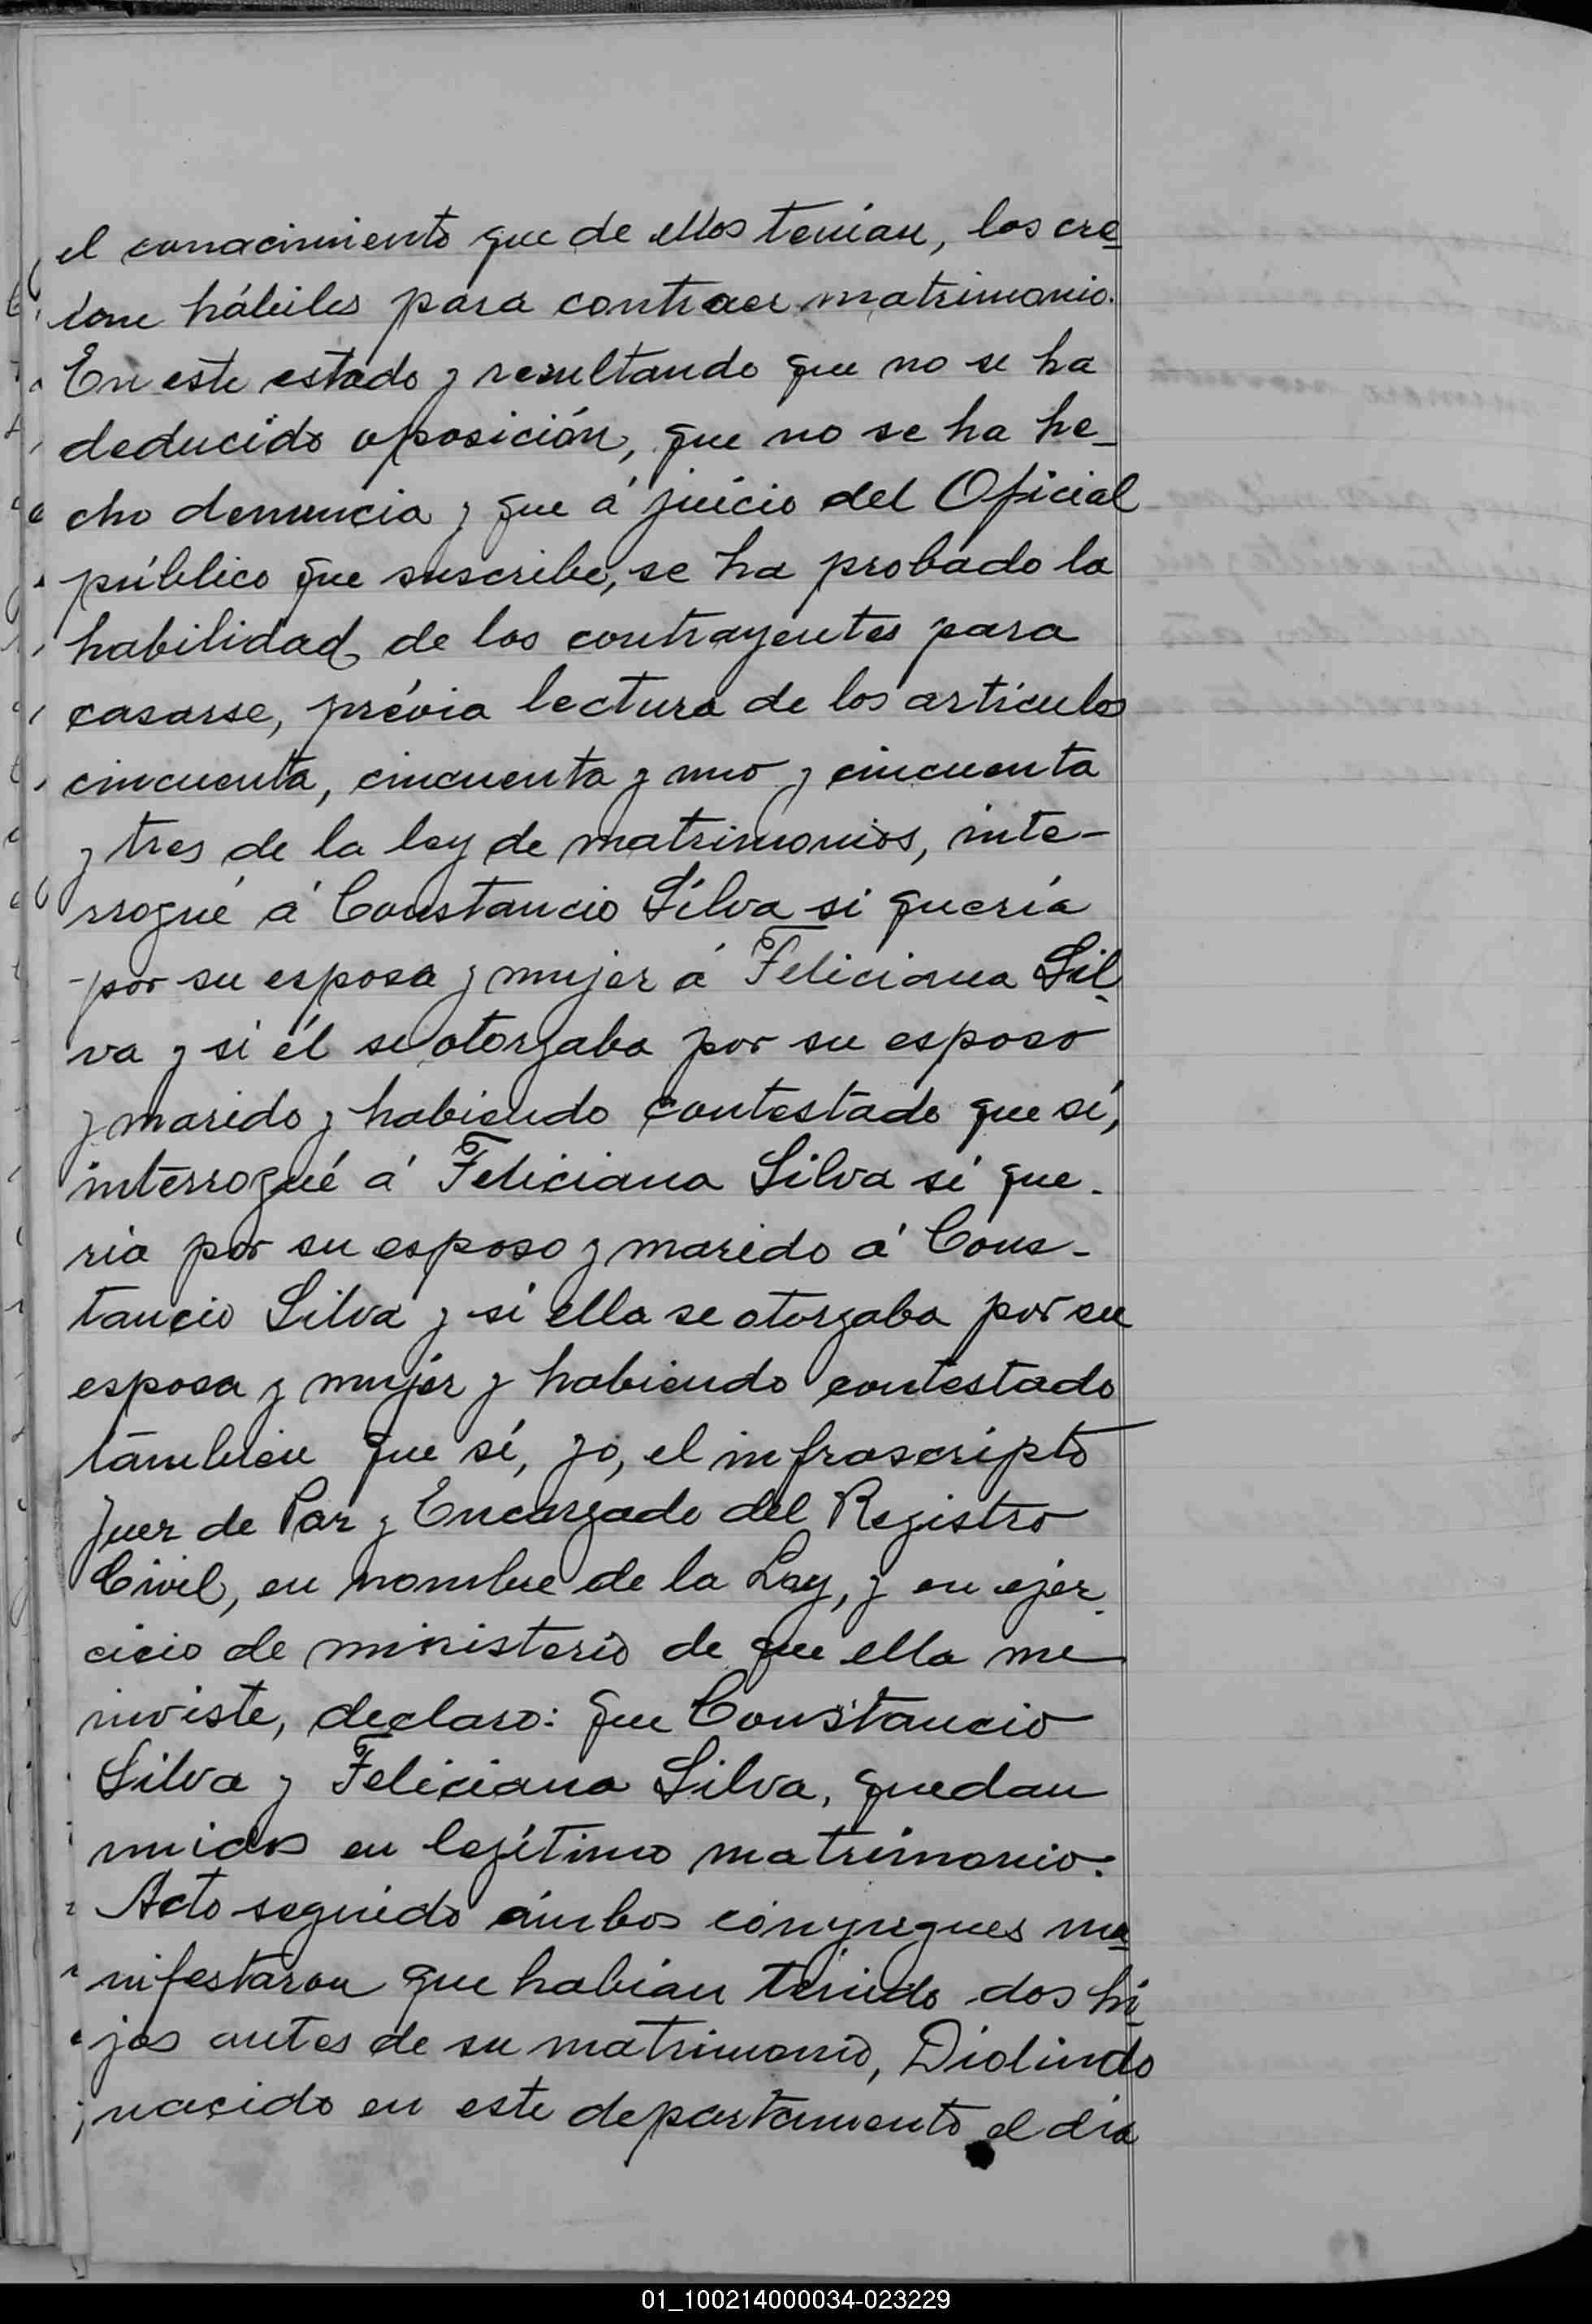 el conocimiento que de ellos tenían, los cre-
ían hábiles para contraer matrimonio.
En este estado y resultando que no se ha
deducido oposición, que no se ha he-
cho denuncia y que á juicio del Oficial
público que suscribe, se ha probado la
habilidad de los contrayentes para
casarse, prévia lectura de los artículos
cincuenta, cincuenta y uno y cincuenta
y tres de la ley de matrimonios, inte-
rrogué á Constancio Silva si quería
por su esposa y mujer á Feliciana Sil-
va y si él se otorgaba por su esposo
y marido y habiendo contestado que sí,
interrogué á Feliciana Silva si que-
ria por su esposo y marido á Cons-
tancio Silva y si ella se otorgaba por su
esposa y mujer y habiendo contestado
tambien que sí, yo, el infrascripto
Juez de Paz y Encargado del Registro
Civil, en nombre de la Ley, y en ejer-
cicio de ministerio de que ella me
inviste, declaro: que Constancio
Silva y Feliciana Silva, quedan
unidos en legítimo matrimonio.
Acto seguido ámbos cónyugues ma-
nifestaron que habían tenido dos hi-
jos antes de su matrimonio, Diolindo
nacido en este departamento el día
01_100214000034-023229